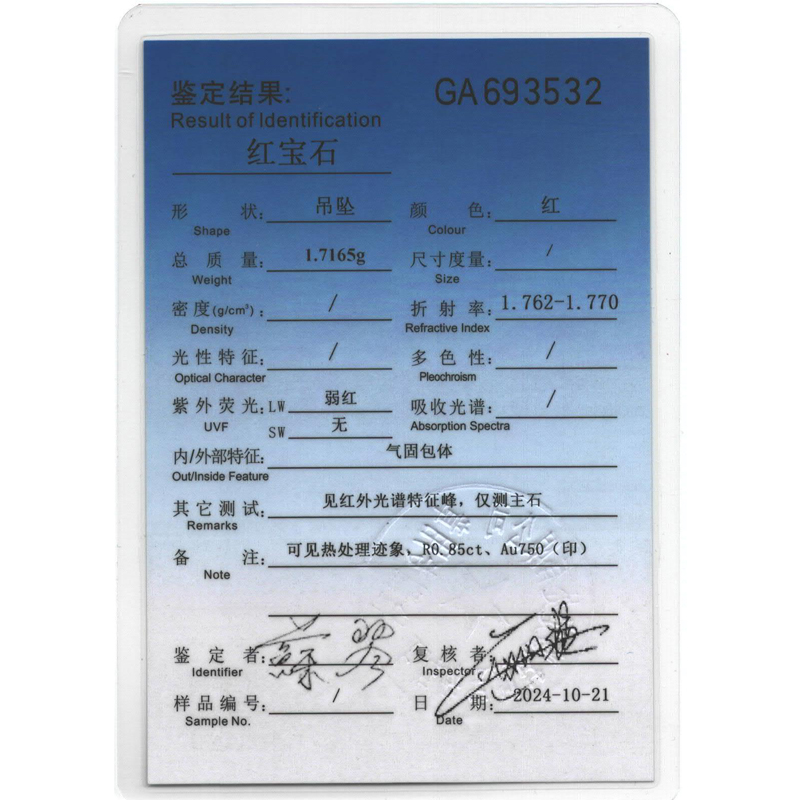 鉴定结果:
GA693532
Result of Identification
红宝石
形 状: 吊坠 颜 色: 红
Shape Colour
总 质 量: 1.7165g 尺寸度量: /
Weight Size
密 度(g/cm³): / 折 射 率: 1.762-1.770
Density Refractive Index
光性特征: / 多 色 性: /
Optical Character Pleochroism
紫外荧光: LW 弱红 吸收光谱: /
UVF SW 无 Absorption Spectra
内/外部特征: 气固包体
Out/Inside Feature
其它测试: 见红外光谱特征峰, 仅测主石
Remarks
备 注: 可见热处理迹象、R0.85ct、Au750（印）
Note
鉴 定 者: 复 核 者:
Identifier Inspector
样品编号: / 日 期: 2024-10-21
Sample No. Date